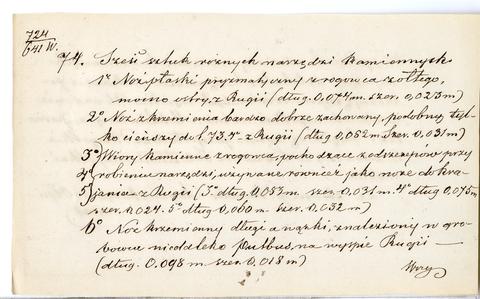 724
641 W.
74. Sześć sztuk różnych narzędzi kamiennych
1º Nóż płaski pryzmatyczny z rogowca żółtego,
mocno ostry, z Rugii (dług. 0,074 m. szer. 0,023 m)
2º Nóż z krzemienia bardzo dobrze zachowany, podobny tyl-
ko cieńszy do l. 73. 4º z Rugii (dług 0,062 m Szer. 0,031 m)
3º Wióry kamienne z rogowca, pochodzące z odszczepów przy
4º robieniu narzędzi, używane również jako noże do kra-
5º jania - z Rugii (3º dług 0,053 m. szer. 0,031 m. 4º dług 0,075 m
szer. 0,024. 5º dług 0,060 m. szer. 0,032 m)
6º Nóż krzemienny długi a wązki, znaleziony w gro-
bowcu niedaleko Putbus, na wyspie Rugii —
(dług. 0,098 m szer. 0,018 m)